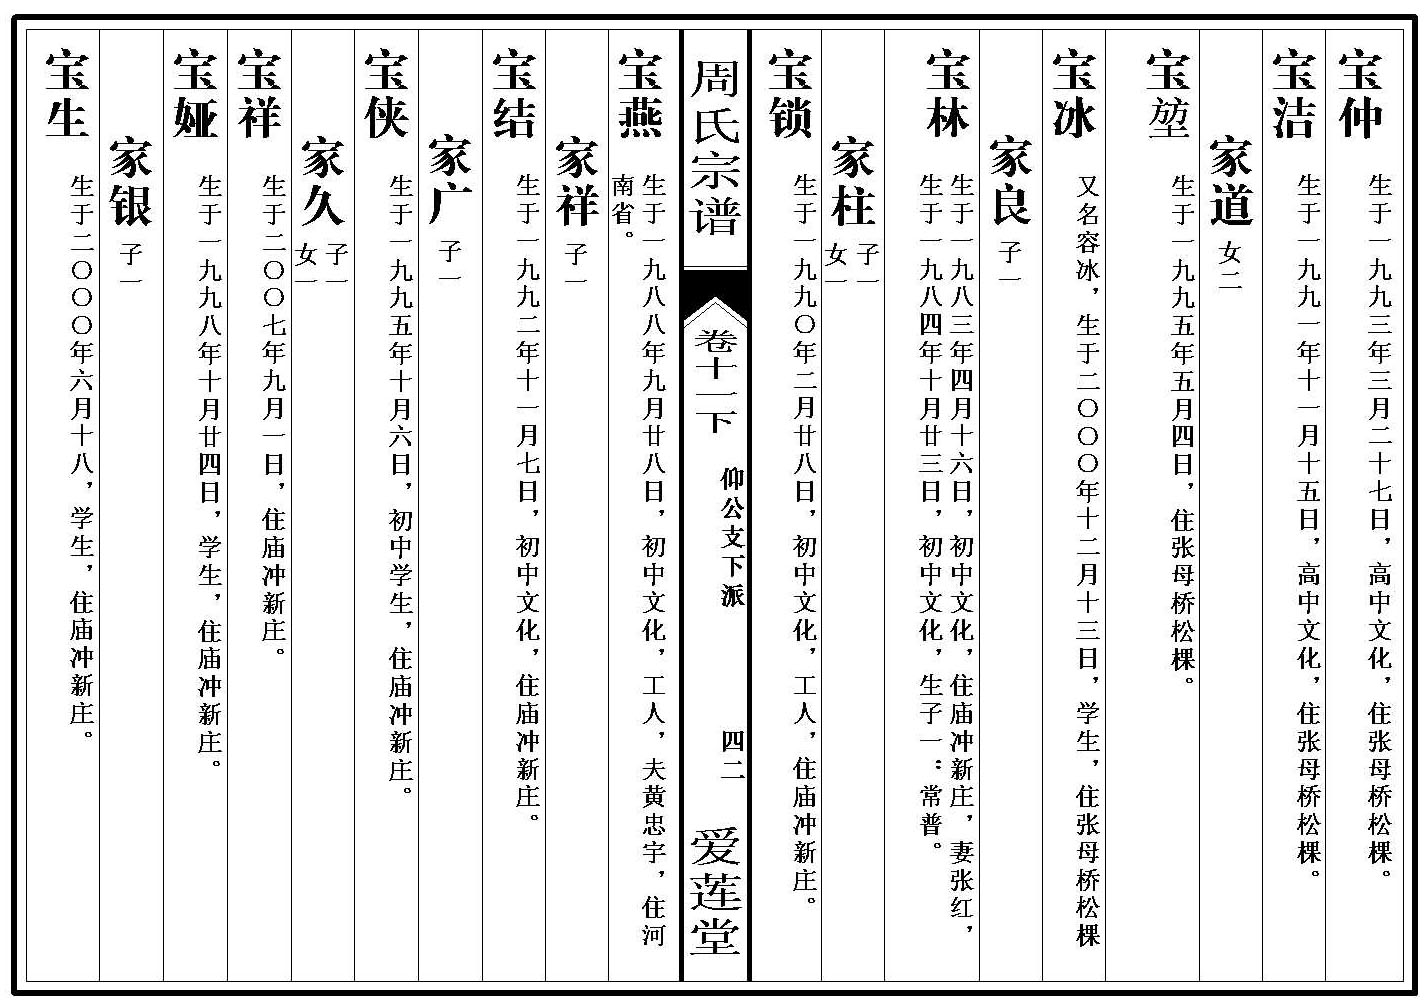 宝仲
生于一九九三年三月二十七日，高中文化，住张母桥松棵。
宝洁
生于一九九一年十一月十五日，高中文化，住张母桥松棵。
家道
女二
宝堃
生于一九九五年五月四日，住张母桥松棵。
宝冰
又名容冰，生于二〇〇〇年十二月十三日，学生，住张母桥松棵
家良
子一
宝林
生于一九八三年四月十六日，初中文化，住庙冲新庄，妻张红，
生于一九八四年十月廿三日，初中文化，生子一：常普。
家柱
子一
女一
宝锁
生于一九九〇年二月廿八日，初中文化，工人，住庙冲新庄。
周氏宗谱
卷十二下
仰公支下派
四二
爱莲堂
宝燕
生于一九八八年九月廿八日，初中文化，工人，夫黄忠宇，住河
南省。
家祥
子一
宝结
生于一九九二年十一月七日，初中文化，住庙冲新庄。
家广
子一
宝侠
生于一九九五年十月六日，初中学生，住庙冲新庄。
家久
子一
女一
宝祥
生于二〇〇七年九月一日，住庙冲新庄。
宝娅
生于一九九八年十月廿四日，学生，住庙冲新庄。
家银
子一
宝生
生于二〇〇〇年六月十八，学生，住庙冲新庄。